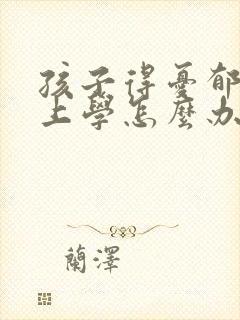 孩子得憂郁
上學怎麼办
蘭澤